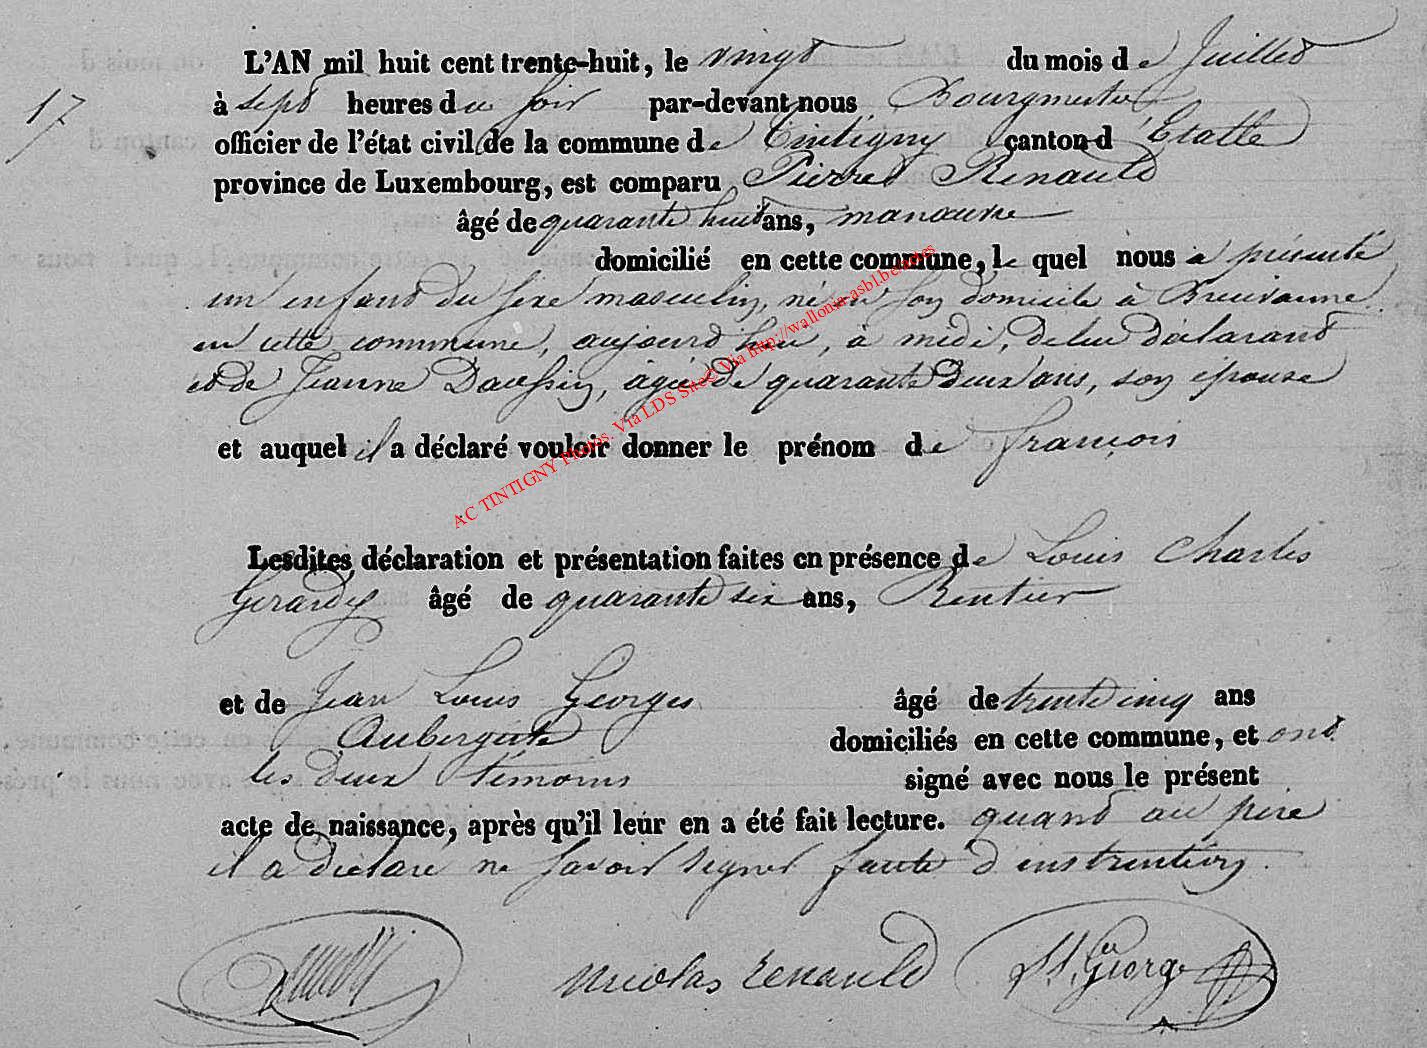 L'AN mil huit cent trente-huit, le vingt du mois de Juillet
17
à sept heures du soir par-devant nous Bourgmestre
officier de l'état civil de la commune de Tintigny canton d'Etalle
province de Luxembourg, est comparu Pierre Renauld
âgé de quarante huit ans, manœuvre
domicilié en cette commune, le quel nous a présenté
un enfant du sexe masculin, né en son domicile à Breuvanne
en cette commune, aujourd'hui, à midi, de lui déclarant
et de Jeanne Daussin, agée de quarante deux ans, son épouse
et auquel il a déclaré vouloir donner le prénom de françois
AC TINTIGNY Photos. Via LDS Site© Via http://wallonia-asbl.be/actes
Lesdites déclaration et présentation faites en présence de Louis Charles
Gerardy âgé de quarante six ans, Rentier
et de Jean Louis Georges âgé de trente cinq ans
Aubergiste domiciliés en cette commune, et ont
les deux témoins signé avec nous le présent
acte de naissance, après qu'il leur en a été fait lecture. quant au père
il a déclaré ne savoir signer faute d'instruction.
Nicolas renauld J. L. George